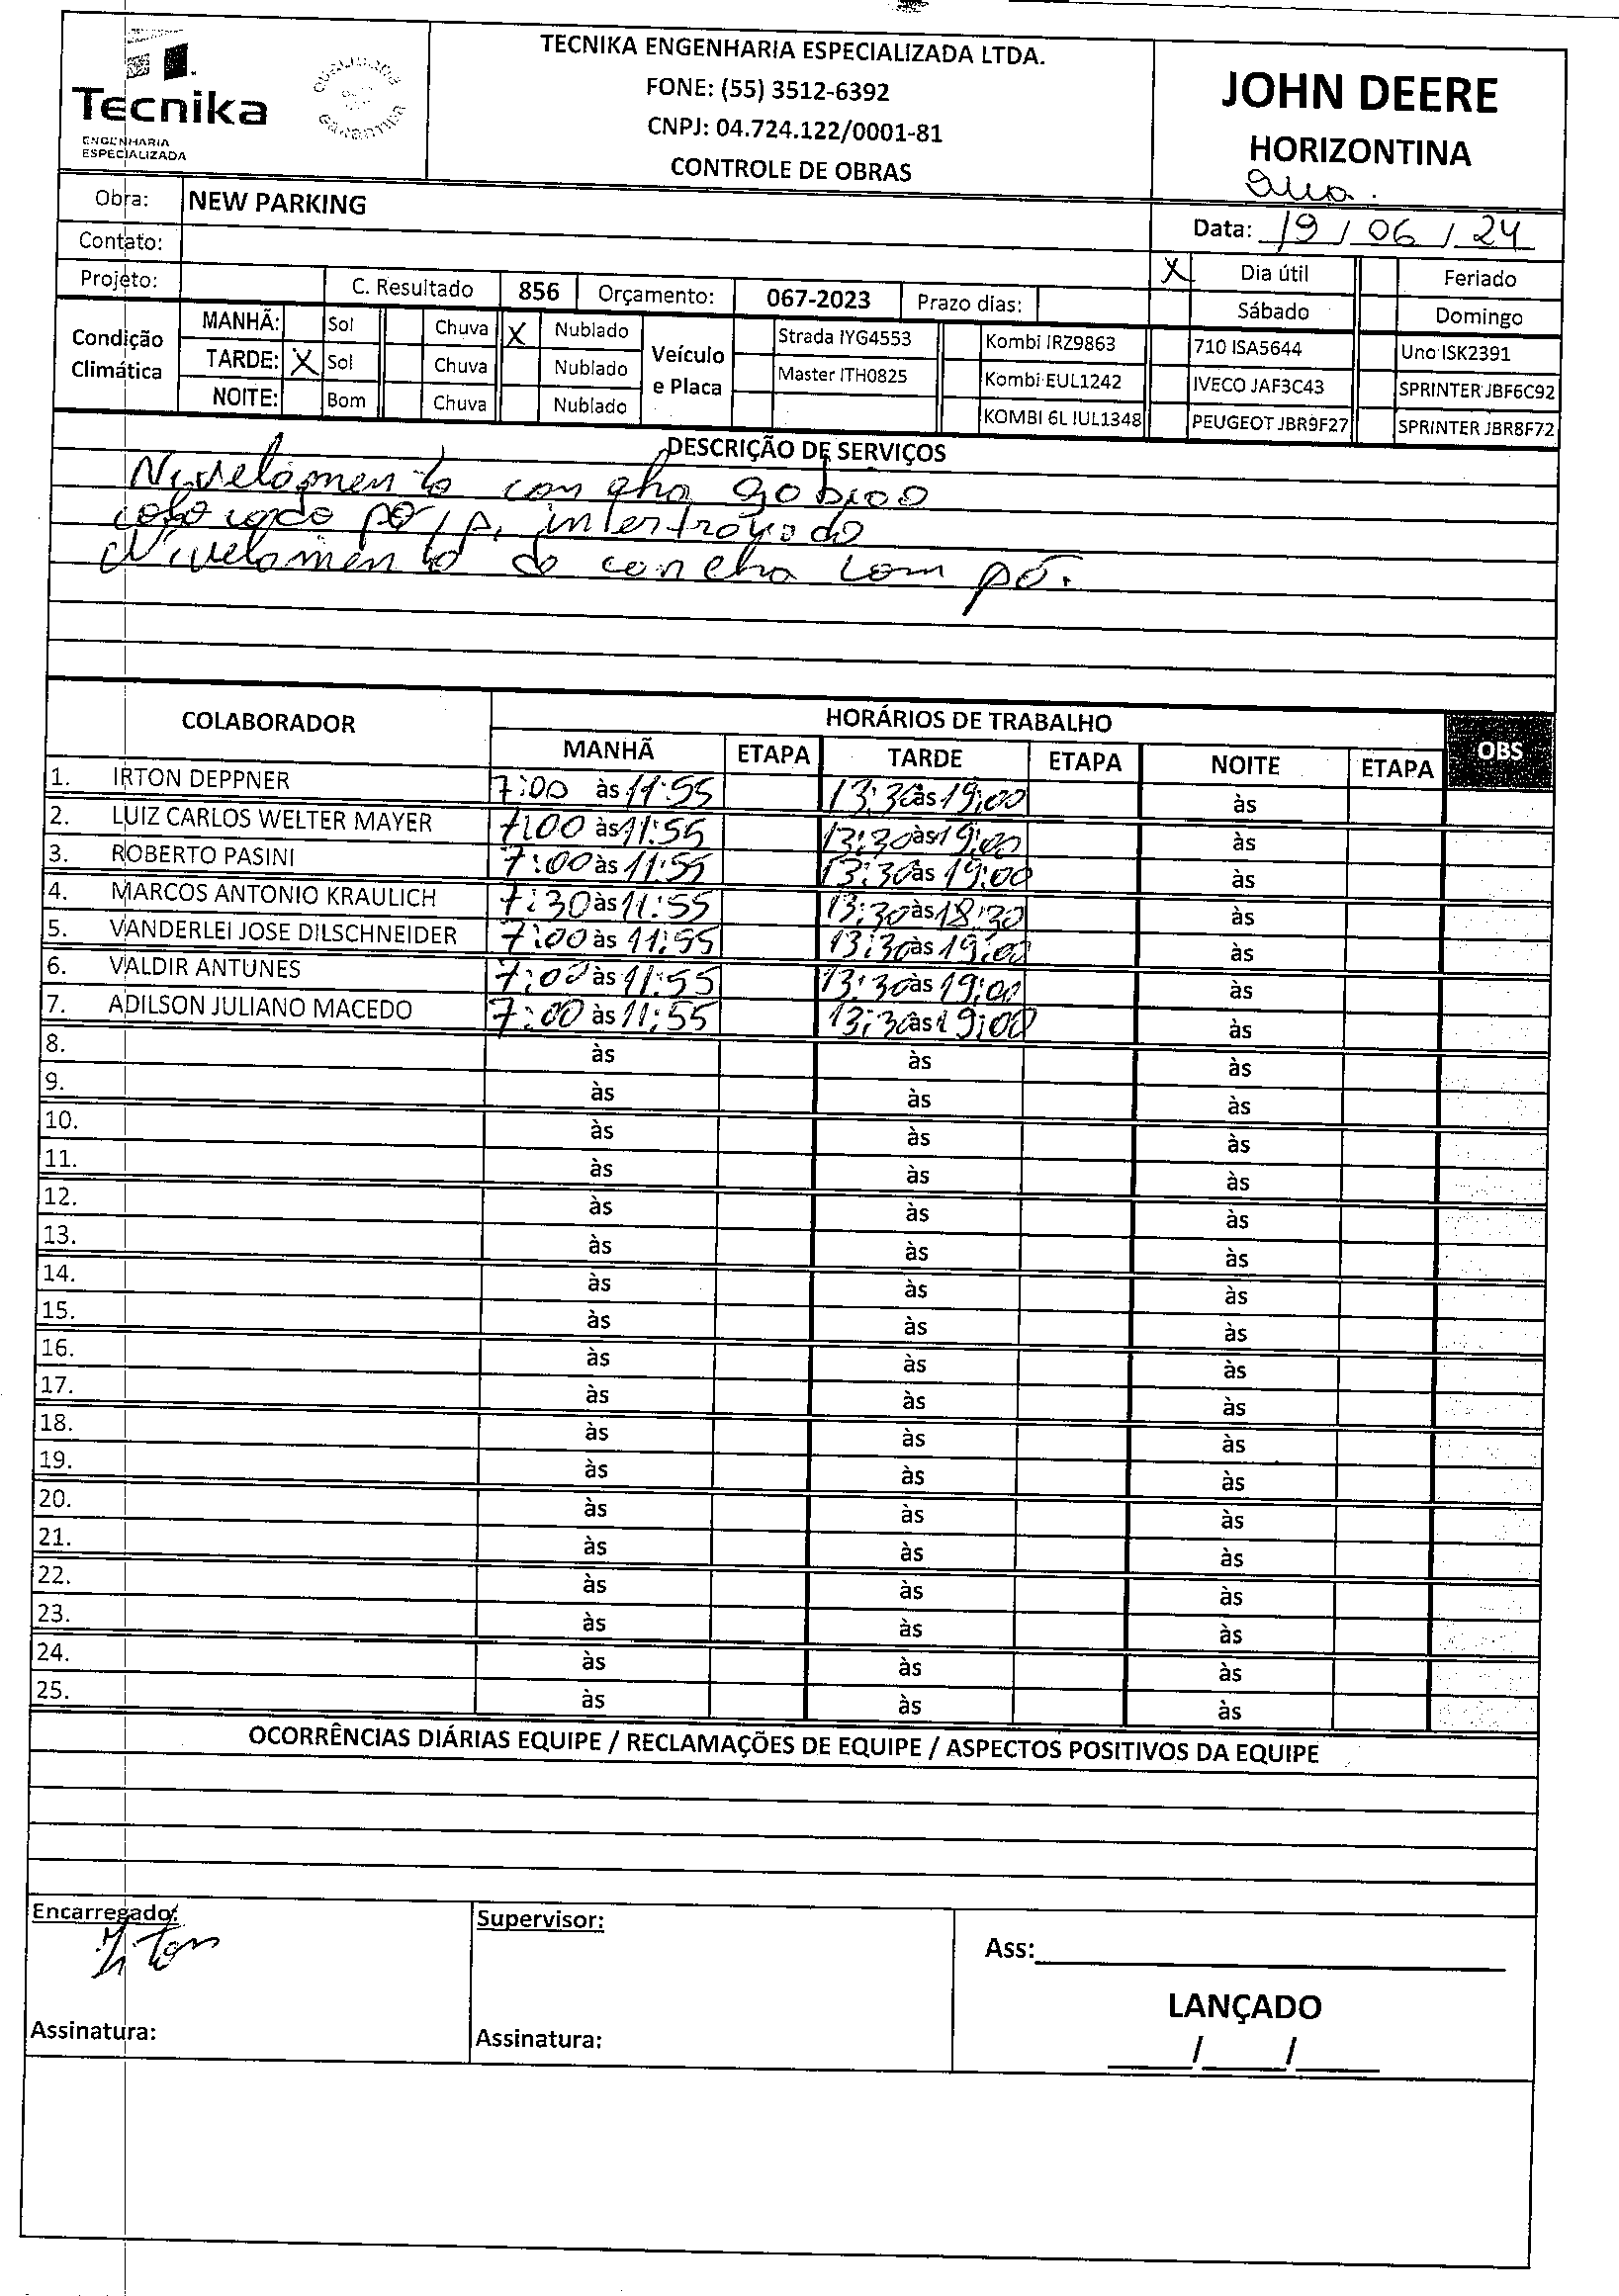 Tecnika
ENGENHARIA
ESPECIALIZADA
QUALIDADE
GARANTIDA
TECNIKA ENGENHARIA ESPECIALIZADA LTDA.
FONE: (55) 3512-6392
CNPJ: 04.724.122/0001-81
CONTROLE DE OBRAS
JOHN DEERE
HORIZONTINA
Obra: NEW PARKING
Data: 19 / 06 / 24
Contato:
X Dia útil Feriado
Projeto: C. Resultado 856 Orçamento: 067-2023 Prazo dias: Sábado Domingo
Condição Climática
MANHÃ: Sol Chuva X Nublado
TARDE: X Sol Chuva Nublado
NOITE: Bom Chuva Nublado
Veículo e Placa
Strada IYG4553 Kombi IRZ9863 710 ISA5644 Uno ISK2391
Master ITH0825 Kombi EUL1242 IVECO JAF3C43 SPRINTER JBF6C92
KOMBI 6L IUL1348 PEUGEOT JBR9F27 SPRINTER JBR8F72
DESCRIÇÃO DE SERVIÇOS
Nivelamento concha
colocado pó /p, intertravado
Nivelamento do concha com pó.
COLABORADOR HORÁRIOS DE TRABALHO OBS
MANHÃ ETAPA TARDE ETAPA NOITE ETAPA
1. IRTON DEPPNER 7:00 às 11:55 13:30 às 19:00 às
2. LUIZ CARLOS WELTER MAYER 7:00 às 11:55 13:30 às 19:00 às
3. ROBERTO PASINI 7:00 às 11:55 13:30 às 19:00 às
4. MARCOS ANTONIO KRAULICH 7:30 às 11:55 13:30 às 18:30 às
5. VANDERLEI JOSE DILSCHNEIDER 7:00 às 11:55 13:30 às 19:00 às
6. VALDIR ANTUNES 7:00 às 11:55 13:30 às 19:00 às
7. ADILSON JULIANO MACEDO 7:00 às 11:55 13:30 às 19:00 às
8. às às às
9. às às às
10. às às às
11. às às às
12. às às às
13. às às às
14. às às às
15. às às às
16. às às às
17. às às às
18. às às às
19. às às às
20. às às às
21. às às às
22. às às às
23. às às às
24. às às às
25. às às às
OCORRÊNCIAS DIÁRIAS EQUIPE / RECLAMAÇÕES DE EQUIPE / ASPECTOS POSITIVOS DA EQUIPE
Encarregado:
Irton
Assinatura:
Supervisor:
Assinatura:
Ass:
LANÇADO
/ /